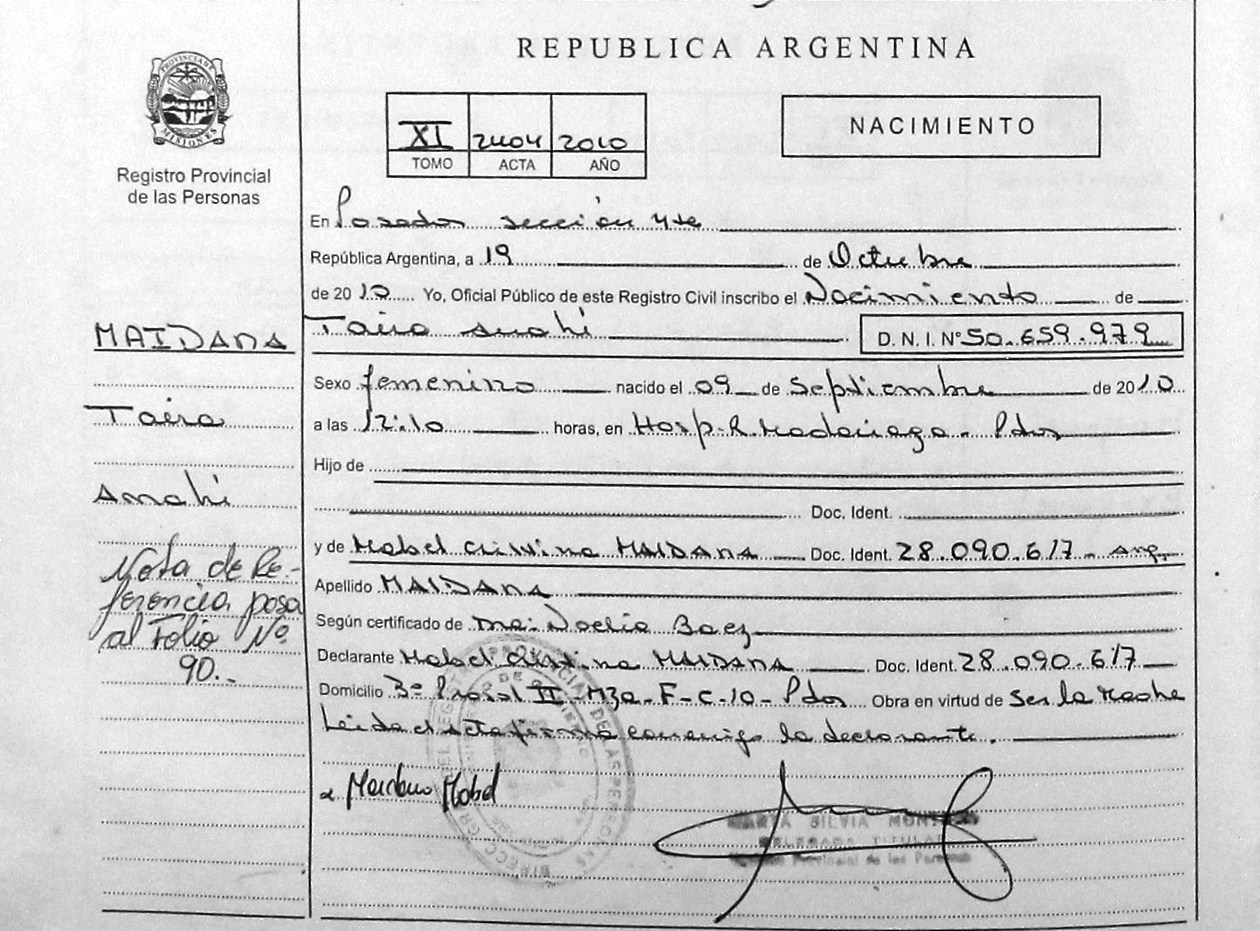 REPUBLICA ARGENTINA
PROVINCIA DE
MISIONES
Registro Provincial
de las Personas
XI 2404 2010
TOMO ACTA AÑO
NACIMIENTO
En Posadas sección 4ta
República Argentina, a 19 de Octubre
de 2010 Yo, Oficial Público de este Registro Civil inscribo el Nacimiento de
Taira Anahi D. N. I. Nº 50.659.979
MAIDANA
Taira
Anahi
Nota de Re-
ferencia pasa
al Folio Nº
90.-
Sexo femenino nacido el 09 de Septiembre de 2010
a las 12:10 horas, en Hosp. R. Madariaga - Pdas
Hijo de
Doc. Ident.
y de Mabel Cristina MAIDANA Doc. Ident. 28.090.617 - Arg.
Apellido MAIDANA
Según certificado de Noelia Baez
Declarante Mabel Cristina MAIDANA Doc. Ident. 28.090.617
Domicilio II - F - C-10 - Pdas Obra en virtud de Ser la Madre
Leida el acta firma conmigo la declarante.
Mabel
SILVIA
DELEGADA TITULAR
Provincial de las Personas